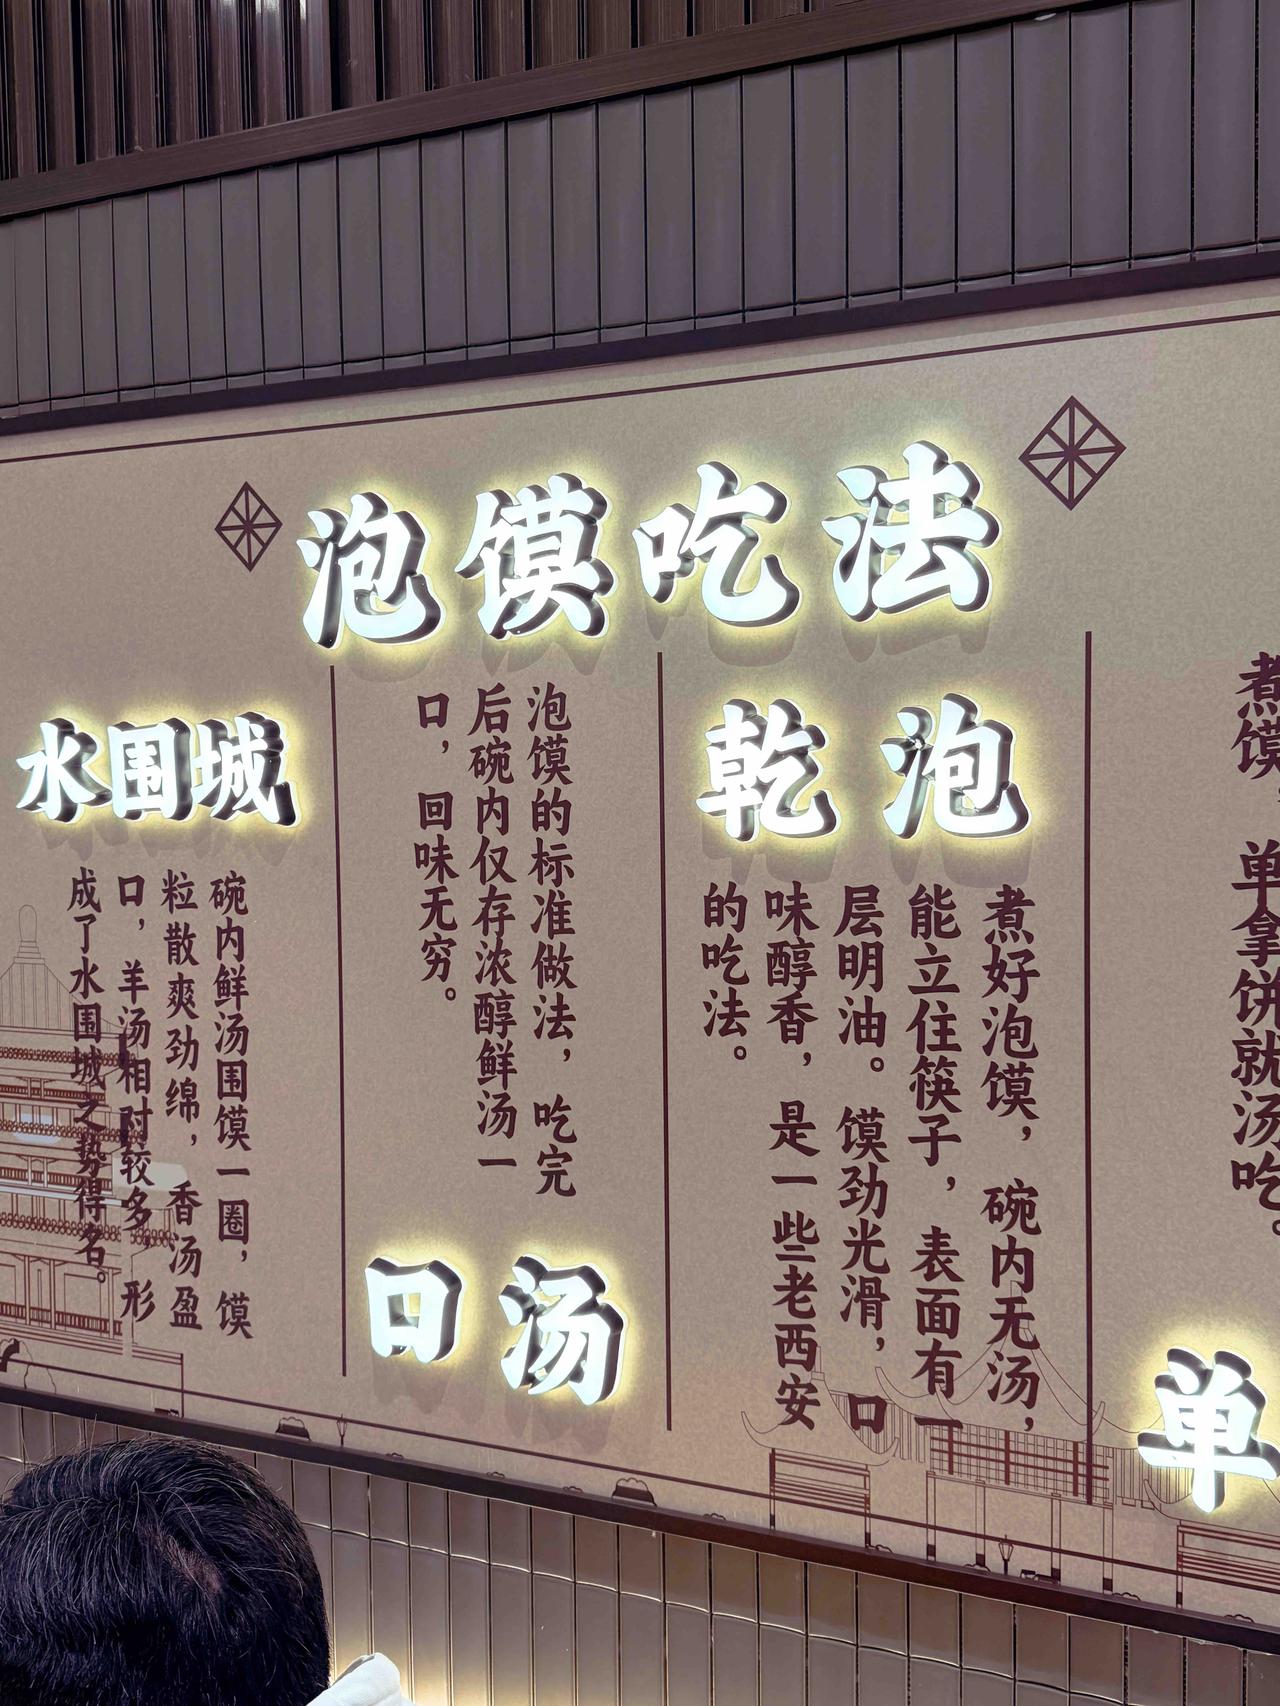 泡馍吃法
煮馍，单拿饼就汤吃。
单
乾泡
煮好泡馍，碗内无汤，
能立住筷子，表面有一
层明油。馍劲光滑，口
味醇香，是一些老西安
的吃法。
泡馍的标准做法，吃完
后碗内仅存浓醇鲜汤一
口，回味无穷。
口汤
水围城
碗内鲜汤围馍一圈，馍
粒散爽劲绵，香汤盈
口，羊汤相对较多，形
成了水围城之势得名。